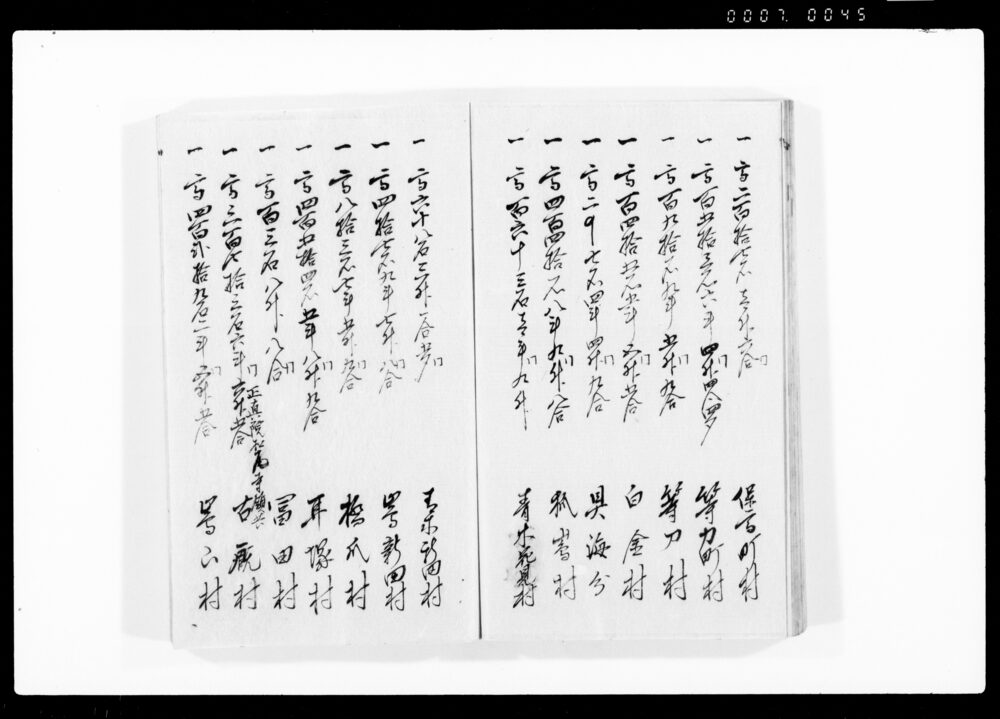 0007. 0045
一 高二百拾七石壱斗六合 保高町村
一 高百五拾三石六斗四升四合四勺 等々力町村
一 高百九拾石九斗五升九合 等々力村
一 高百四拾五石五斗三升五合 白金村
一 高二千七石四斗四升九合 貝海分
一 高四百四拾石八斗九升八合 狐嶌村
一 高百六十三石壱斗九升 青木花見村
一 高六十八石三升一合五勺 青木新田村
一 高四拾七石九斗七升八合 嶌新田村
一 高八拾三石七斗五升九合 橋爪村
一 高四百五拾四石五斗八升九合 耳塚村
一 高百三石八升八合 冨田村
正真院松尾寺領共
一 高三百七拾三石六斗六升五合 古厩村
一 高四百弐拾九石二斗五升五合 嵩下村